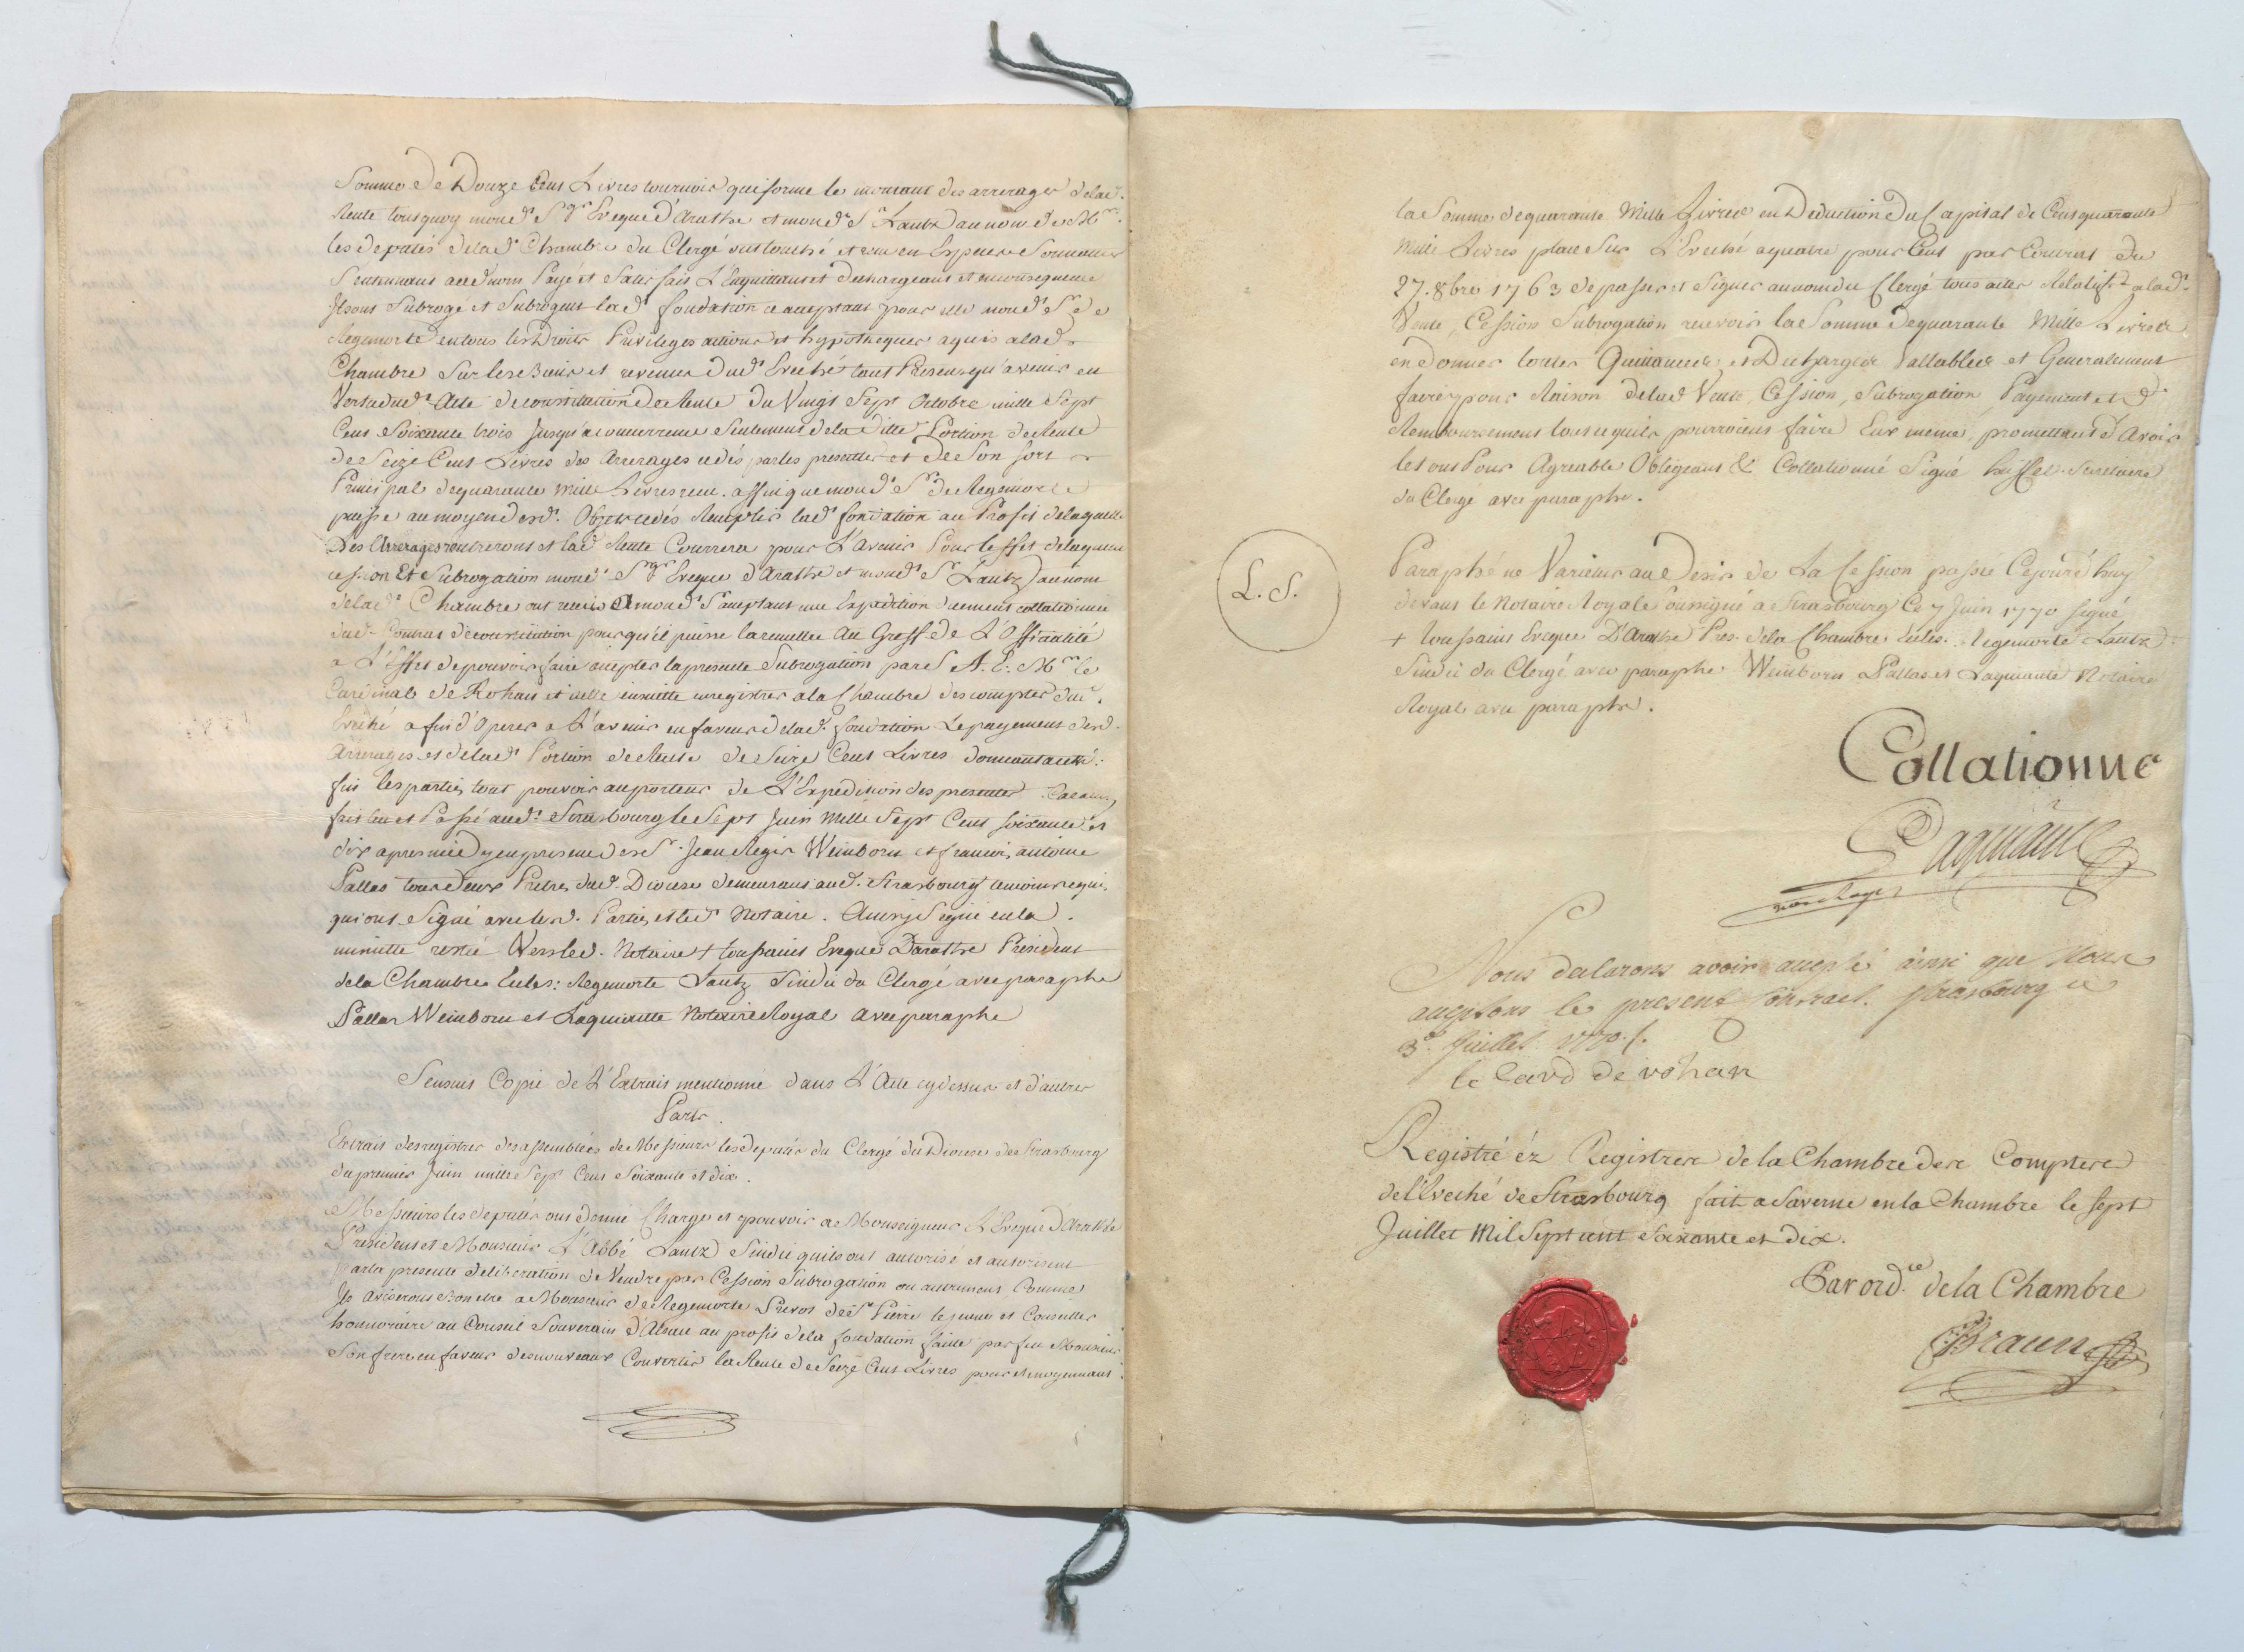 Somme de Douze Cens Livres tournois qui forme le montant des arrerages de lad.
Rente tous quoy moned. Sgr Eveque d'Arathe et moud. Sr Lautz au nom de Mrs.
les deputés de lad. Chambre du Clergé ont touché et reçu en Especes Sonnantes
S'en tenans aud. nom Payé et Satisfais L'En quittans et dechargeans et en consequence
Ils ont Subrogé et Subrogent lad. fondation ce acceptant pour elle moud. Sr de
Regemorte en tous les Droits Privileges actions et hypotheques aquis a lad.
Chambre Sur les Biens et revenus dud. Eveché tant Presens qu'avenir en
Vertu dud. Acte de constitution de Rente du Vingt Sept Octobre mille Sept
Cens Soixante trois Jusqu'a concurrence Seulement de la ditte Portion de Rente
de Seize Cens Livres des Arrerages cedés par les presentes et de Son fort
Principal de quarante mille Livres affin que moud. Sr de Regemorte
puisse au moyen desd. Objets cedés Remplir lad. fondation au Profit de laquelle
Les Arrerages rentreront et lad. Rente Courrera pour L'avenir Pour l'effet de laquelle
cession Et Subrogation moud. Sgr Eveque d'Arathe et moud. Sr Lautz au nom
de lad. Chambre ont remis a moud. S. acceptant une Expedition duement collationnée
dud. Contrat de constitution pour qu'il puisse la remettre au Greffe de L'Officialité
a L'Effet de pouvoir faire accepter la presente Subrogation par S. A. E. Mgr le
Cardinal de Rohan et icelle ensuitte enregistrer a la Chambre des comptes dud.
Eveché afin d'Operer a L'avenir en faveur de lad. fondation Le payement desd.
Arrerages et de lad. Portion de Rente de Seize Cens Livres donnant a cette
fin les parties tout pouvoir au porteur de L'Expedition des presentes. Car ainsy
fait lu et Passé aud. Strasbourg le Sept Juin Mille Sept Cens Soixante et
dix apres midy en presence des Sr. Jean Regis Weinborn et francois antoine
Pallas tous deux Pretres dud. Diocese demeurans aud. Strasbourg temoins requis
qui ont Signé avec lesd. Parties et led. Notaire. Ainsy Signé en la
minutte restée Vers led. Notaire + toussaint Eveque Darathe President
de la Chambre Eccles: Regemorte Lautz Sindic du Clergé avec paraphe
Pallas Weinborn et Laquiante Notaire Royal avec paraphe
Sensuit Copie de L'Extrait mentionné dans L'Acte cy dessus et d'autres
Parts.
Extrait des registres des assemblées de Messieurs les deputés du Clergé du Diocese de Strasbourg
du premier Juin mille Sept Cens Soixante et dix.
Messieurs les deputés ont donné Charge et pouvoir a Monseigneur L'Eveque d'Arathe
President et Monsieur L'Abbé Lautz Sindic quils ont autorisé et autorisent
par la presente deliberation de Vendre par Cession Subrogation ou autrement Comme
Ils aviseront Bon etre a Monsieur de Regemorte Prevot de St Pierre le jeune et Conseiller
honnoraire au Conseil Souverain d'Alsace au profit de la fondation faitte par feu Monsieur
Son frere en faveur des nouveaux Convertis la Rente de Seize Cens Livres pour et moyennant
la Somme de quarante Mille Livres en Deduction du Capital de Cent quarante
Mille Livres placé Sur L'Eveché a quatre pour Cent par Contrat du
27. 8bre 1763 de passer et Signer au nom du Clergé tous actes Relatifs a lad.
Vente, Cession Subrogation recevoir la Somme de quarante Mille Livres
en Donner toutes Quittances et Decharges Vallables et Generalement
faire pour Raison de lad. Vente, Cession, Subrogation, Payement et
Remboursement tous ce quils pourroient faire Eux meme, promettant d'Avoir
le tout Pour Agreable Obligeant & Collationné Signé Secretaire
du Clergé avec paraphe.
L. S.
Paraphé ne Varietur au Desir de La Cession passée Cejourd'huy
devant le Notaire Royal Soussigné a Strasbourg Ce 7 Juin 1770 Signé
+ toussaint Eveque D'Arathe Pres. de la Chambre Eccles. Regemorte Lautz
Sindic du Clergé avec paraphe Weinborn Pallas et Laquiante Notaire
Royal avec paraphe.
Collationné
Laquiante
Nous declarons avoir accepté ainsi que Nous
acceptons le present Contract. Strasbourg ce
3e. Juillet 1770./.
le Card de rohan
Registré éz Registres de la Chambre des Comptes
de l'Eveché de Strasbourg fait a Saverne en la Chambre le sept
Juillet Mil Sept cent Soixante et Dix.
Par ordce. de la Chambre
Braun